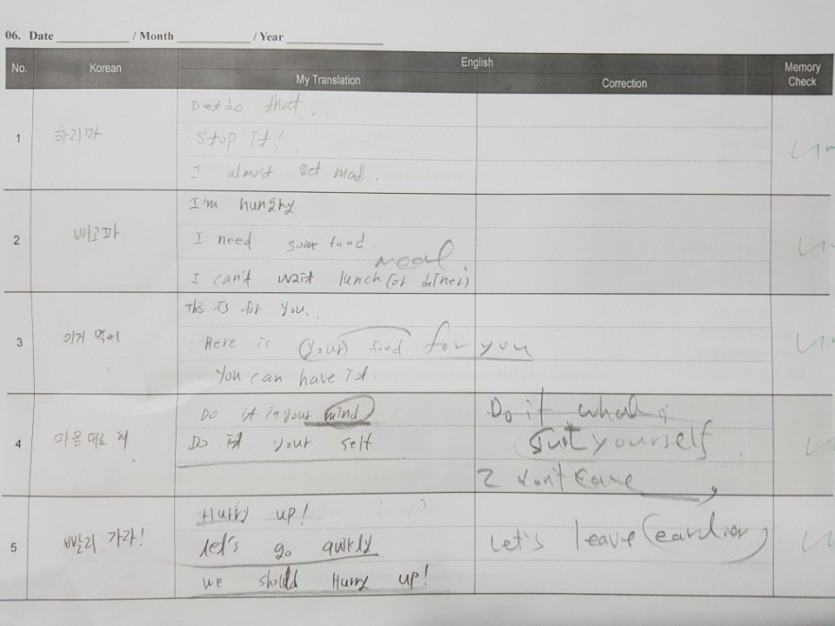 06. Date / Month / Year
No. Korean English Memory Check
My Translation Correction
1 하지마
Don't do that..
Stop It!
I almost get mad.
2 배고파
I'm hungry
I need some food.
meal
I can't wait lunch (or dinner)
3 이거 먹어
This is for you.
Here is (your) food for you
You can have it.
4 마음대로 해
Do it in your mind
Do it your self
Do it what
Suit yourself
I don't care
5 빨리 가라!
Hurry up!
let's go quikly
we should Hurry up!
Let's leave (earlier)